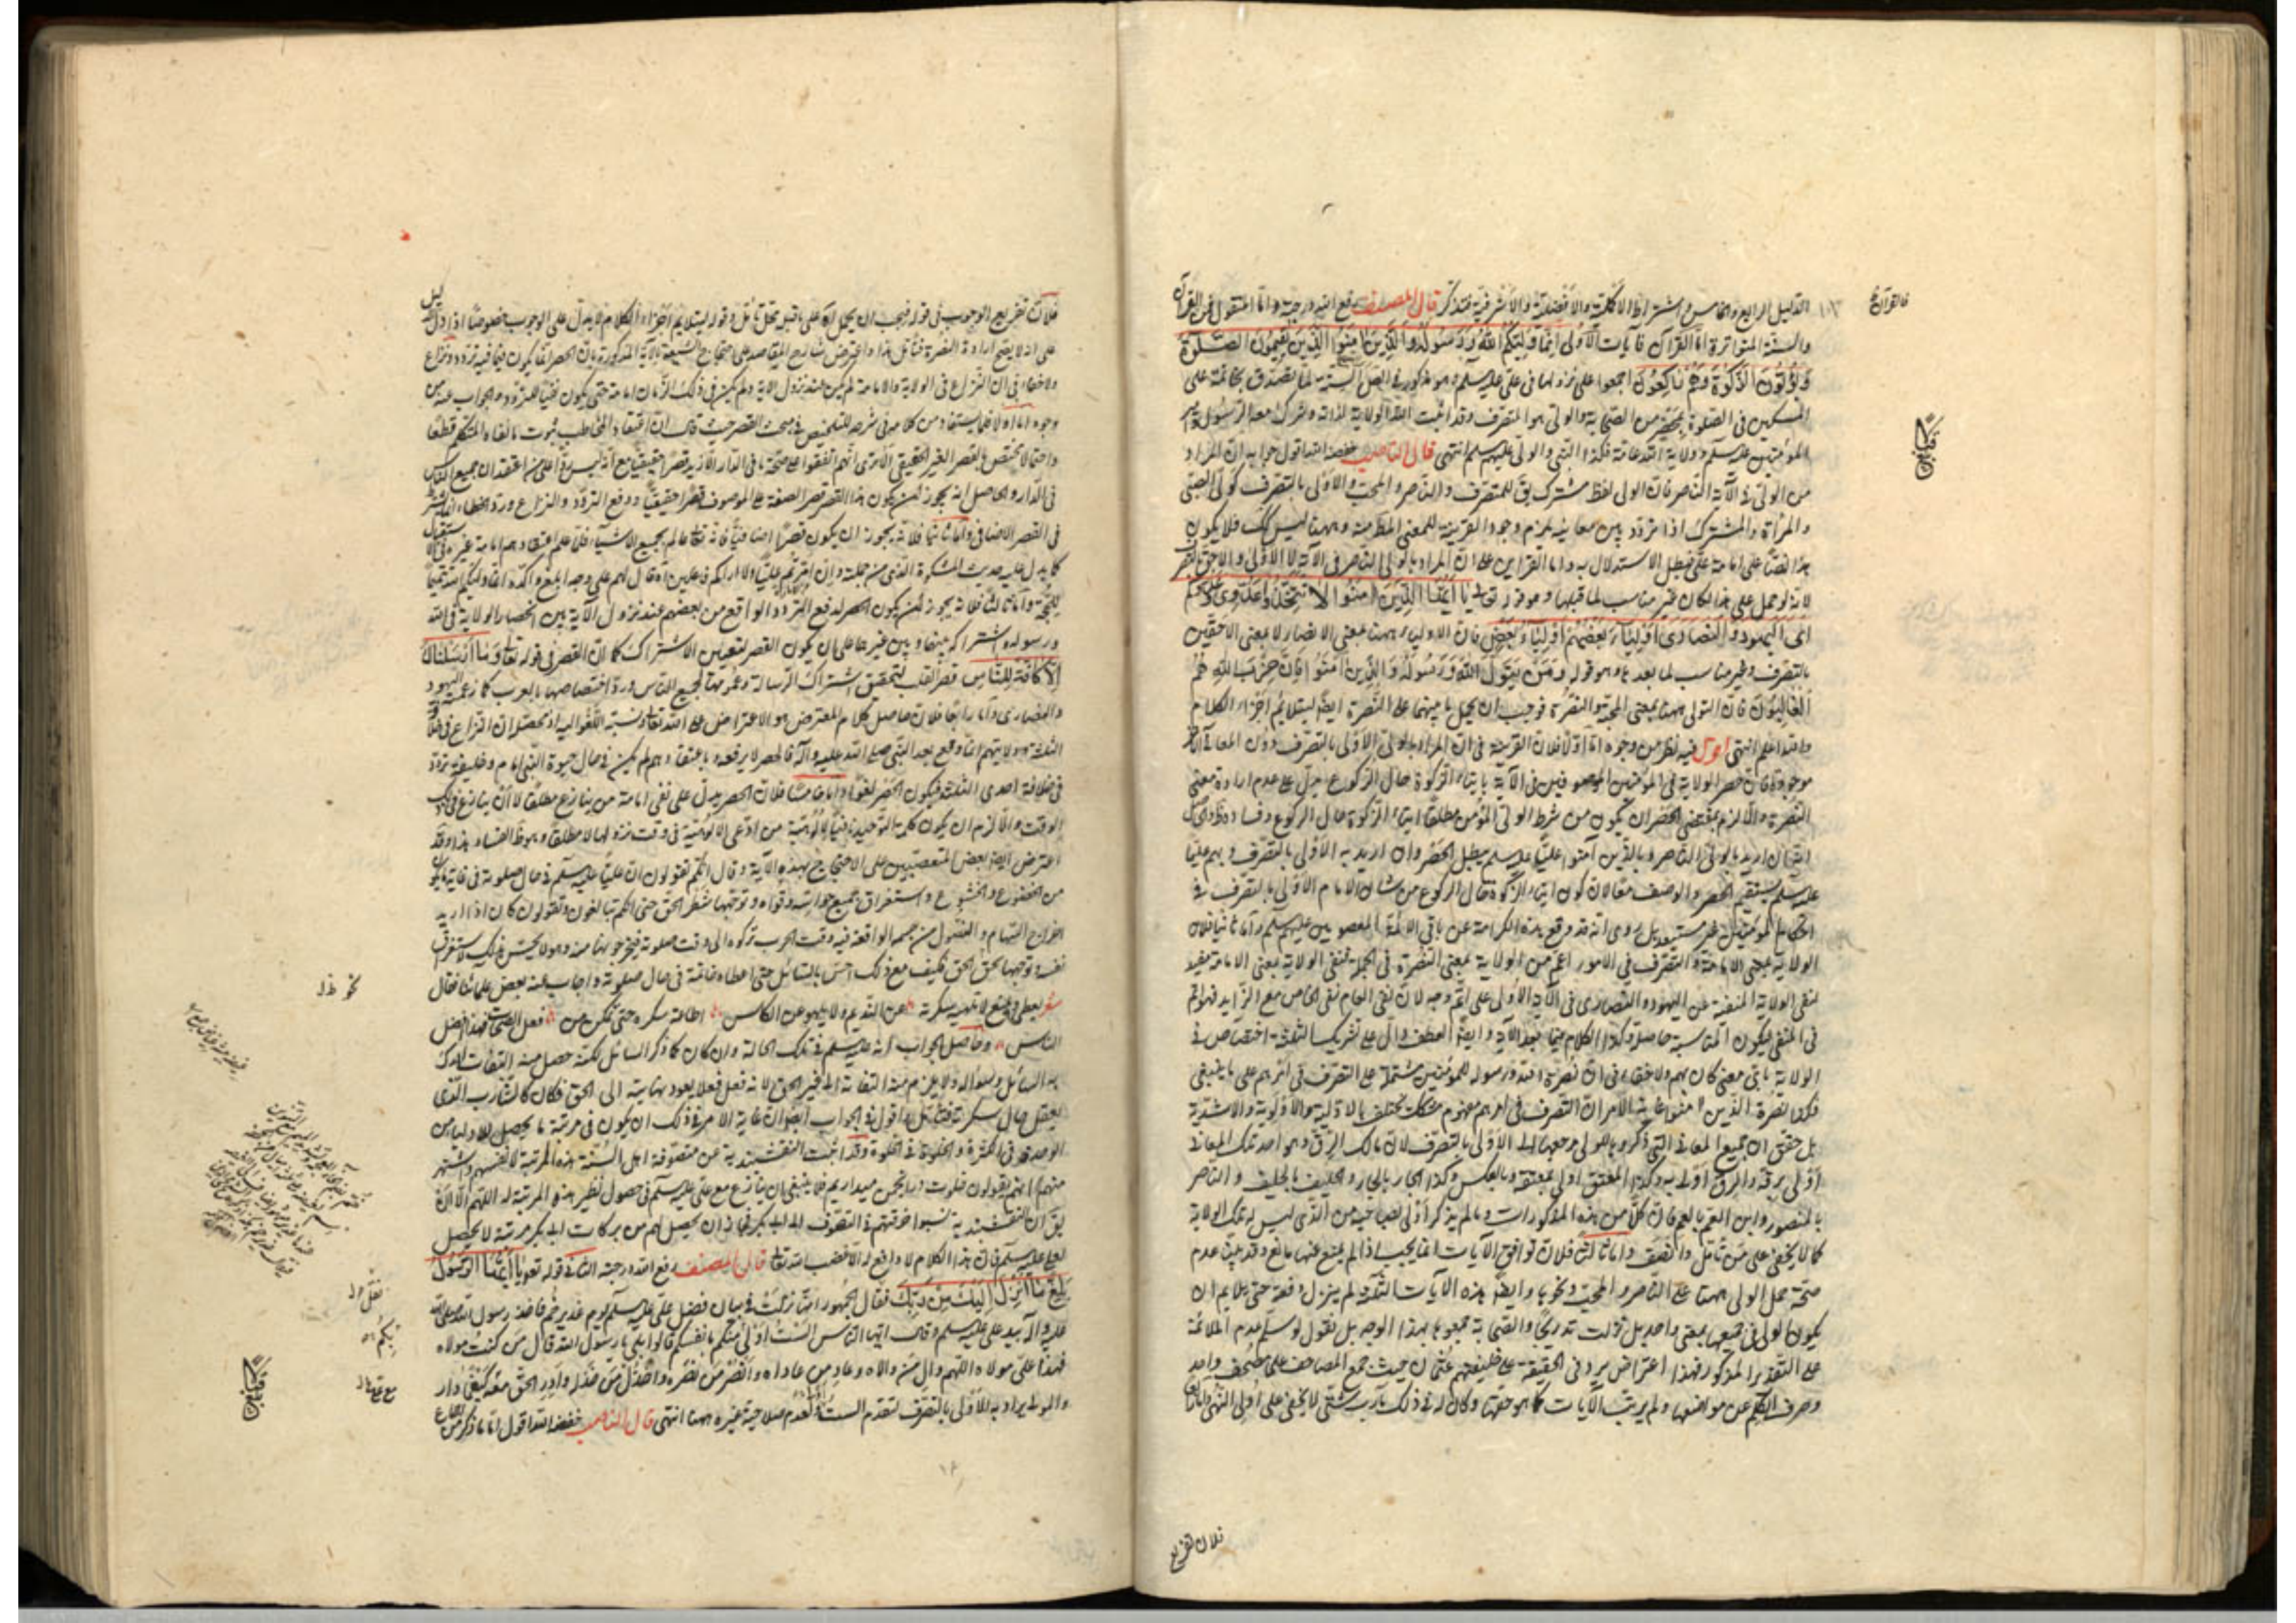 الدليل الرابع والخامس واشتراط الاكملية والافضلية والاشرفية فتذكر قال المصنف رفع الله درجته واما المنقول فمن القرآن
والسنة المتواترة اما القرآن فآيات الاولى اِنَّمَا وَلِيُّكُمُ اللهُ وَرَسُولُهُ وَالَّذِينَ آمَنُوا الَّذِينَ يُقِيمُونَ الصَّلٰوةَ
وَيُؤْتُونَ الزَّكٰوةَ وَهُمْ رَاكِعُونَ اجمعوا على نزولها في علي عليه السلم وهو مذكور في الصحاح الستة لما تصدق بخاتمه على
المسكين في الصلوة بمحضر من الصحابة والولي هو المتصرف وقد اثبت الله الولاية لذاته وشرك معه الرسول وامير
المؤمنين عليه السلم وولاية الله عامة فكذا النبي والولي عليهم السلم انتهى قال الناصب خفضه الله اقول جوابه ان المراد
من الولي في الآية الناصر فان الولي لفظ مشترك يق للمتصرف والناصر والمحب والاولى بالتصرف كولي الصبي
والمرأة والمشترك اذا تردد بين معانيه يلزم وجود القرينة للمعنى المطلوب منه وههنا ليس كك فلا يكون
هذا نصا على امامة علي فبطل الاستدلال به واما القراين على ان المراد بالولي الناصر في الآية لا الاولى والاحق بالتصرف
لانه لو حمل على هذا لكان غير مناسب لما قبلها وهو قوله تعالى يَا اَيُّهَا الَّذِينَ آمَنُوا لَا تَتَّخِذُوا
الْيَهُودَ وَالنَّصَارَى اَوْلِيَاءَ بَعْضُهُمْ اَوْلِيَاءُ بَعْضٍ فان الاولياء ههنا بمعنى الانصار لا بمعنى الاحقين
بالتصرف وغير مناسب لما بعدها وهو قوله وَمَنْ يَتَوَلَّ اللهَ وَرَسُولَهُ وَالَّذِينَ آمَنُوا فَاِنَّ حِزْبَ اللهِ هُمُ
الْغَالِبُونَ فان التولي ههنا بمعنى المحبة والنصرة فوجب ان يحمل ما بينهما على النصرة ايضا ليتلائم اجزاء الكلام
والله اعلم انتهى اقول فيه نظر من وجوه اما اولا فلان القرينة في ان المراد بالولي الاولى بالتصرف دون المعاني الاخر
موجودة فان حصر الولاية في المؤمنين الموصوفين في الآية بايتاء الزكوة حال الركوع يدل على عدم ارادة معنى
النصرة والا لزم بمقتضى الحصر ان يكون من شرط الولي المؤمن مطلقا ايتاء الزكوة حال الركوع وفساده ظ
ان اريد بالولي الناصر وبالذين آمنوا عليا عليه السلم يبطل الحصر وان اريد به الاولى بالتصرف وبهم عليا
عليه السلم يستقيم الحصر والوصف معا لان كون ايتاء الزكوة حال الركوع من شان الامام الاولى بالتصرف في
احكام المؤمنين غير مستبعد بل روى انه قد وقع هذه الكرامة عن باقي الائمة المعصومين عليهم السلم واما ثانيا فلان
الولاية بمعنى الامامة والتصرف في الامور اعم من الولاية بمعنى النصرة في الجملة فنفي الولاية بمعنى الامامة مفيد
لنفي الولاية المنفية عن اليهود والنصارى في الآية الاولى على اتم وجه لان نفي العام نفي الخاص مع الزايد
في النفي فيكون المناسبة حاصلة وكذا الكلام فيما بعد الآية وايضا العطف دال على تشريك الثلثة اختصاص في
الولاية باي معنى كان بهم ولا خفاء في ان نصرة الله ورسوله للمؤمنين مشتملة على التصرف في امرهم على ما ينبغي
فكذا نصرة الذين آمنوا غاية الامر ان التصرف في امرهم مفهوم مشكك يختلف بالاولية والاولوية والاشدية
بل حقق ان جميع المعاني التي ذكروها للولي مرجعها الى الاولى بالتصرف لان مالك الرق وهو احد تلك المعاني
اولى برقه والرق اولى به وكذا المعتق اولى بمعتقه وبالعكس وكذا الجار بالجار والحليف بالحليف والناصر
بالمنصور وابن العم بالعم فان كلا من هذه المذكورات وما لم يذكر اولى لصاحبه من الذي ليس له تلك الولاية
كما لا يخفى على من تأمل وانصف واما ثالثا فلان توافق الآيات انما يجب اذا لم يمنع عنها مانع وقد بين عدم
صحة حمل الولي ههنا على الناصر والمحب ونحوها وايضا هذه الآيات الثلثة لم ينزل دفعة حتى يلايم ان
يكون الولي في جميعها بمعنى واحد بل نزلت تدريجا والصحابة جمعوها بهذا الوجه بل نقول لو سلم عدم الملائمة
على التقدير المذكور فهذا اعتراض يرد في الحقيقة على خليفتهم عثمان حيث جمع المصاحف على مصحف واحد
وحرف الكلم عن مواضعها ولم يرتب الآيات كما هو حقها وكان له في ذلك مآرب شتى لا يخفى على اولى النهى
فلان تفريع
فلان تفريع الوجوب في قوله فيجب ان يحمل آه على ما قبله محل تأمل وقوله ليتلايم اجزاء الكلام لا يدل على الوجوب خصوصا اذا دل دليل
على انه لا يصح ارادة النصرة فتأمل هذا واعترض شارح المقاصد على احتجاج الشيعة بالآية المذكورة بان الحصر انما يكون فيما فيه تردد ونزاع
ولا خفاء في ان النزاع في الولاية والامامة لم يكن عند نزول الاية ولم يكن في ذلك الزمان امامة حتى يكون نفيا للتردد والجواب عنه من
وجوه اما اولا فلما يستفاد من كلامه في شرحه للتلخيص في مبحث القصر حيث قال ان اعتقاد المخاطب ثبوت ما نفاه المتكلم قطعا
واحتمالا مختص بالقصر الغير الحقيقي الا ترى انهم اتفقوا على صحة ما في الدار الا زيد قصرا حقيقيا مع انه ليس ردا على من اعتقد ان جميع الناس
في الدار والحاصل انه يجوز ان يكون هذا القصر قصر الصفة على الموصوف قصرا حقيقيا ودفع التردد والنزاع ورد الخطاء انما يشترط
في القصر الاضافي واما ثانيا فلانه يجوز ان يكون قصرا اضافيا فانه تعالى عالم بجميع الاشياء فلما علم اعتقادهم امامة غيره في الاستقبال
كما يدل عليه حديث المشكوة الذي من جملته وان امرتم عليا ولا اراكم فاعلين آه قال لهم على وجه ابلغ وآكد انما وليكم الله تتميما
للحجة واما ثالثا فلانه يجوز ان يكون الحصر لدفع التردد الواقع من بعضهم عند نزول الآية بين انحصار الولاية في الله
ورسوله واشتراكه بينهما وبين غيرهما على ان يكون القصر لتعيين الاشتراك كما ان القصر في قوله تعالى وَمَا اَرْسَلْنَاكَ
اِلَّا كَافَّةً لِلنَّاسِ قصر القلب لتحقيق اشتراك الرسالة وعمومها لجميع الناس ورد اختصاصها بالعرب كما زعمته اليهود
والنصارى واما رابعا فلان حاصل كلام المعترض هو الاعتراض على الله تعالى ونسبة اللغو اليه اذ محصله ان النزاع في خلافة
الثلثة وولايتهم انما وقع بعد النبي صلى الله عليه وآله فالحصر لا يرفعه وباعتقادهم لم يكن في حال حيوة النبي امام وخليفة تردد
في خلافة احدى الثلثة فيكون الحصر لغوا واما خامسا فلان الحصر يدل على نفي امامة من ينازع مطلقا لا ان ينازع في ذلك
الوقت والا لزم ان يكون كلمة التوحيد نافيا لالوهية من ادعى الالوهية في وقت نزولها لا مطلقا وهو ظ الفساد هذا وقد
اعترض ايضا بعض المتعصبين على الاحتجاج بهذه الآية وقال انكم تقولون ان عليا عليه السلم في حال صلوته في غاية ما يكون
من الخضوع والخشوع واستغراق جميع حواسه وقواه وتوجهها شطر الحق حتى انكم تبالغون وتقولون كان اذا اريد
اخراج السهام والنصول من جسمه الواقعة فيه وقت الحرب تركوه الى وقت صلوته فيخرجونها منه وهو لا يحس بذلك لاستغراق
نفسه وتوجهها نحو الحق فكيف مع ذلك احس بالسائل حتى اعطاه خاتمه في حال صلوته واجاب عنه بعض علمائنا فقال
شعر يعطي ويمنع لا تلهيه سكرته عن النديم ولا يلهو عن الكاس اطاعه سكره حتى تمكن من فعل الصحاة فهذا افضل
الناس وحاصل الجواب انه عليه السلم في تلك الحالة وان كان كما ذكر السائل لكنه حصل منه التفات لادراك
به السائل وسؤاله ولا يلزم منه التفاته الى غير الحق لانه فعل فعلا يعود نهايته الى الحق فكان كالشارب الذي
يفعل حال سكره فتأمل بل اقول في الجواب ايضا ان غاية الامر في ذلك ان يكون في مرتبة ما يحصل للاولياء من
الوحدة في الكثرة والخلوة في الجلوة وقد اثبت النقشبندية من متصوفة اهل السنة هذه المرتبة لانفسهم واشتهر
منهم انهم يقولون خلوت در انجمن ميداريم فلا ينبغي ان ينازع مع علي عليه السلم في حصول نظير هذه المرتبة له اللهم الا ان
يق ان النقشبندية نسبوا خرقتهم في التصوف الى ابي بكر فجاز ان يحصل لهم من بركات ابي بكر مرتبة لا يحصل
لعلي عليه السلم فان هذا الكلام لا دافع له الا غضب الله تعالى قال المصنف رفع الله درجته الثانية قوله تعالى يَا اَيُّهَا الرَّسُولُ
بَلِّغْ مَا اُنْزِلَ اِلَيْكَ مِنْ رَبِّكَ نقل الجمهور انها نزلت في بيان فضل علي عليه السلم يوم غدير خم فاخذ رسول الله صلى الله
عليه وآله بيد علي عليه السلم وقال ايها الناس الست اولى منكم بانفسكم قالوا بلى يا رسول الله قال من كنت مولاه
فهذا علي مولاه اللهم وال من والاه وعاد من عاداه وانصر من نصره واخذل من خذله وادر الحق معه كيف ما دار
والمولى يراد به الاولى بالتصرف لتقدم الست اولى ولعدم صلاحية غيره ههنا انتهى قال الناصب خفضه الله اقول اما ما ذكر من